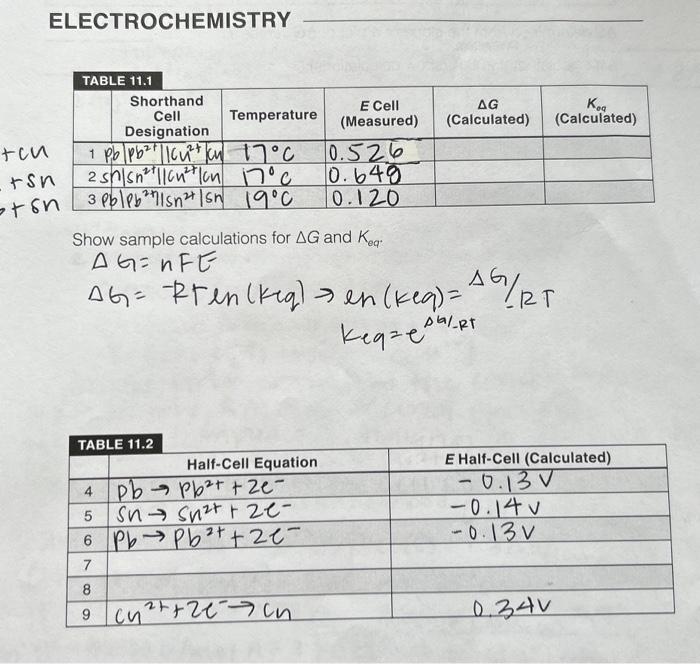 ELECTROCHEMISTRY
TABLE 11.1
Shorthand Cell Designation Temperature E Cell (Measured) ΔG (Calculated) Keq (Calculated)
+cu 1 Pb|Pb²⁺||Cu²⁺|Cu 17°C 0.526
+sn 2 Sn|Sn²⁺||Cu²⁺|Cu 17°C 0.649
+sn 3 Pb|Pb²⁺||Sn²⁺|Sn 19°C 0.120
Show sample calculations for ΔG and Keq.
ΔG = nFE
ΔG = -RTen(Keq) → en(Keq) = ΔG/-RT
Keq = e^ΔG/-RT
TABLE 11.2
Half-Cell Equation E Half-Cell (Calculated)
4 Pb → Pb²⁺ + 2e⁻ -0.13 V
5 Sn → Sn²⁺ + 2e⁻ -0.14 V
6 Pb → Pb²⁺ + 2e⁻ -0.13 V
7
8
9 Cu²⁺ + 2e⁻ → Cu 0.34V